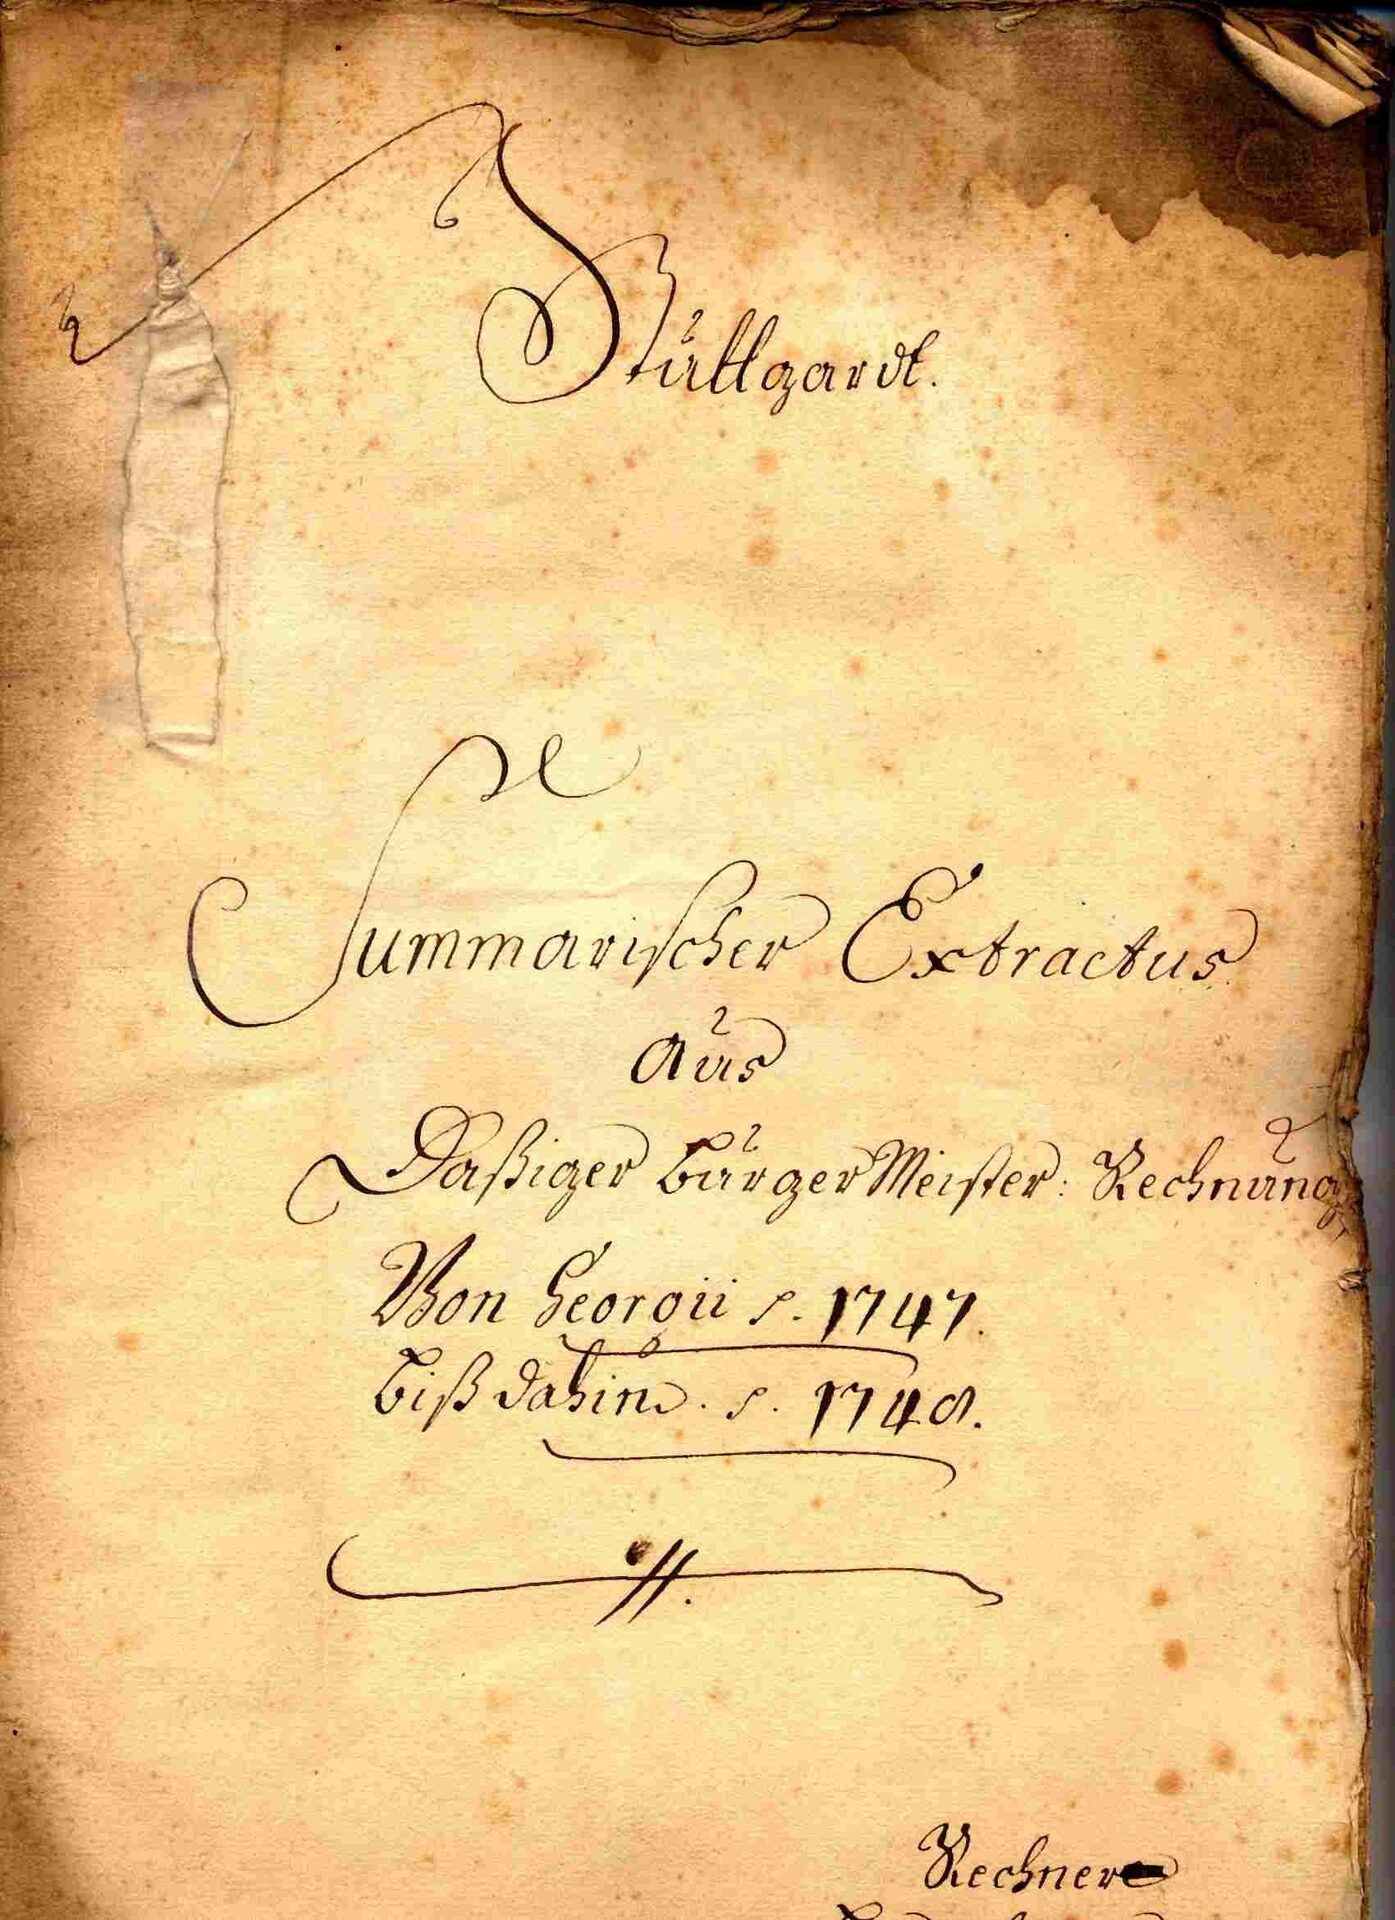 Stuttgardt.
Summarischer Extractus
aus
Daßiger BurgerMeister: Rechnung
Von Georgii p. 1747.
biß dahin. p. 1748.
Rechner